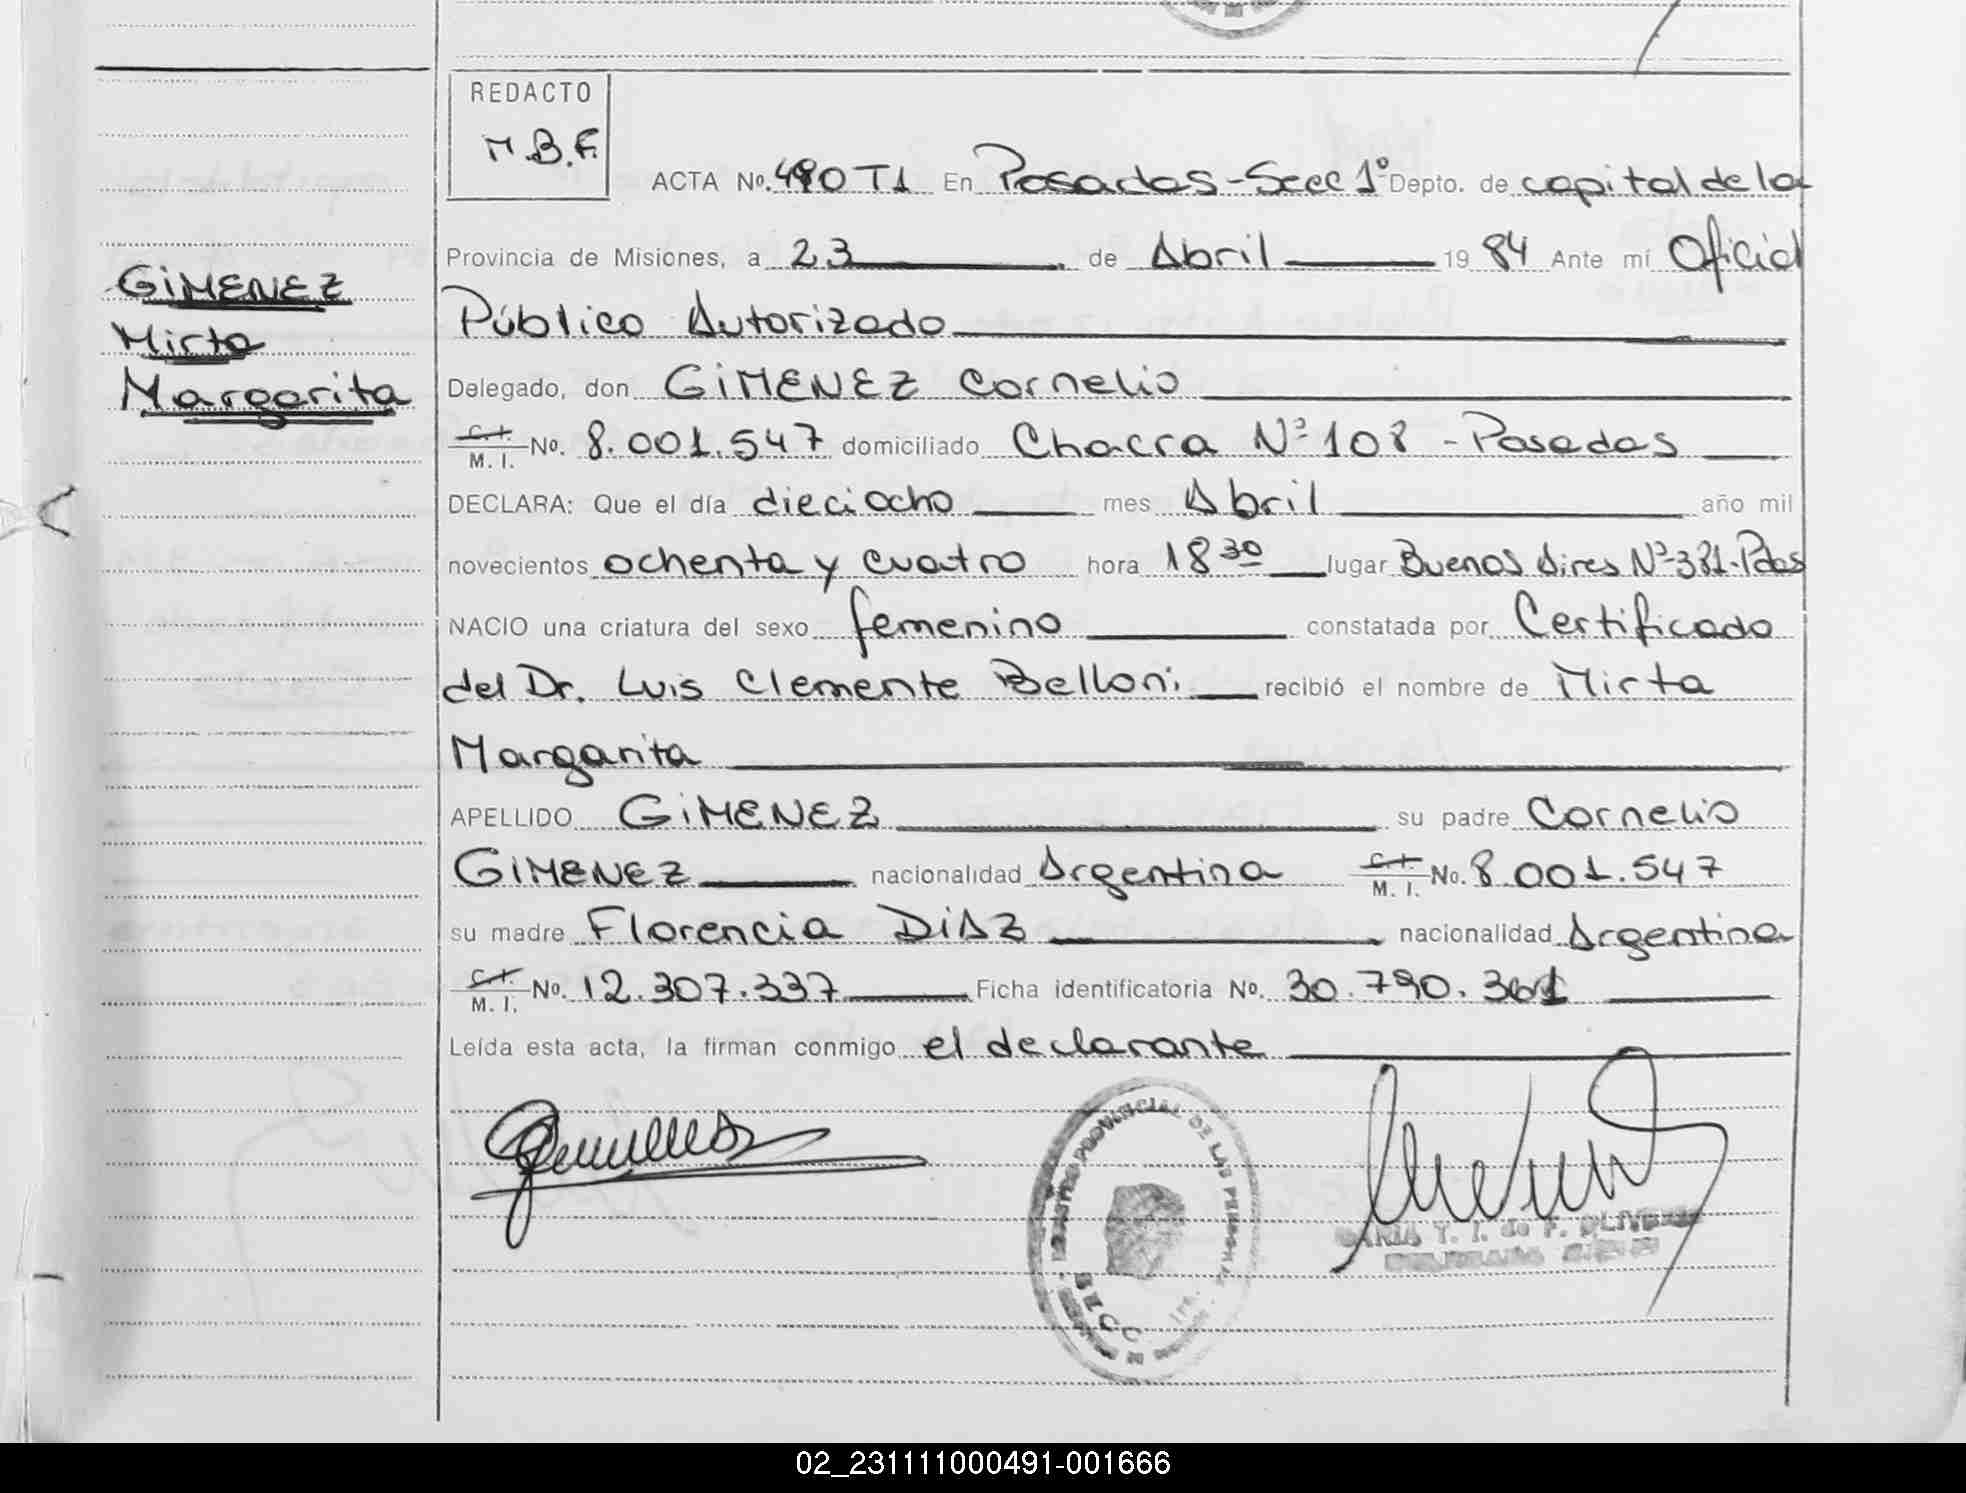 REDACTO
M.B.F.
ACTA No. 490 T1 En Posadas - Secc 1º Depto. de capital de la
Provincia de Misiones, a 23 de Abril 19 84 Ante mí Oficial
GIMENEZ
Público Autorizado
Mirta
Delegado, don GIMENEZ Cornelio
Margarita
C.I. M. I. No. 8.001.547 domiciliado Chacra Nº 108 - Posadas
DECLARA: Que el día dieciocho mes Abril año mil
novecientos ochenta y cuatro hora 18 30 lugar Buenos Aires Nº 381 - Pdas
NACIO una criatura del sexo femenino constatada por Certificado
del Dr. Luis Clemente Belloni recibió el nombre de Mirta
Margarita
APELLIDO GIMENEZ su padre Cornelio
GIMENEZ nacionalidad Argentina C.I. M. I. No. 8.001.547
su madre Florencia DIAZ nacionalidad Argentina
C.I. M. I. No. 12.307.337 Ficha identificatoria No. 30.790.361
Leída esta acta, la firman conmigo el declarante
PROVINCIAL DE LAS PERSONAS
MARIA T. I. de F. OLIVERA
02_231111000491-001666